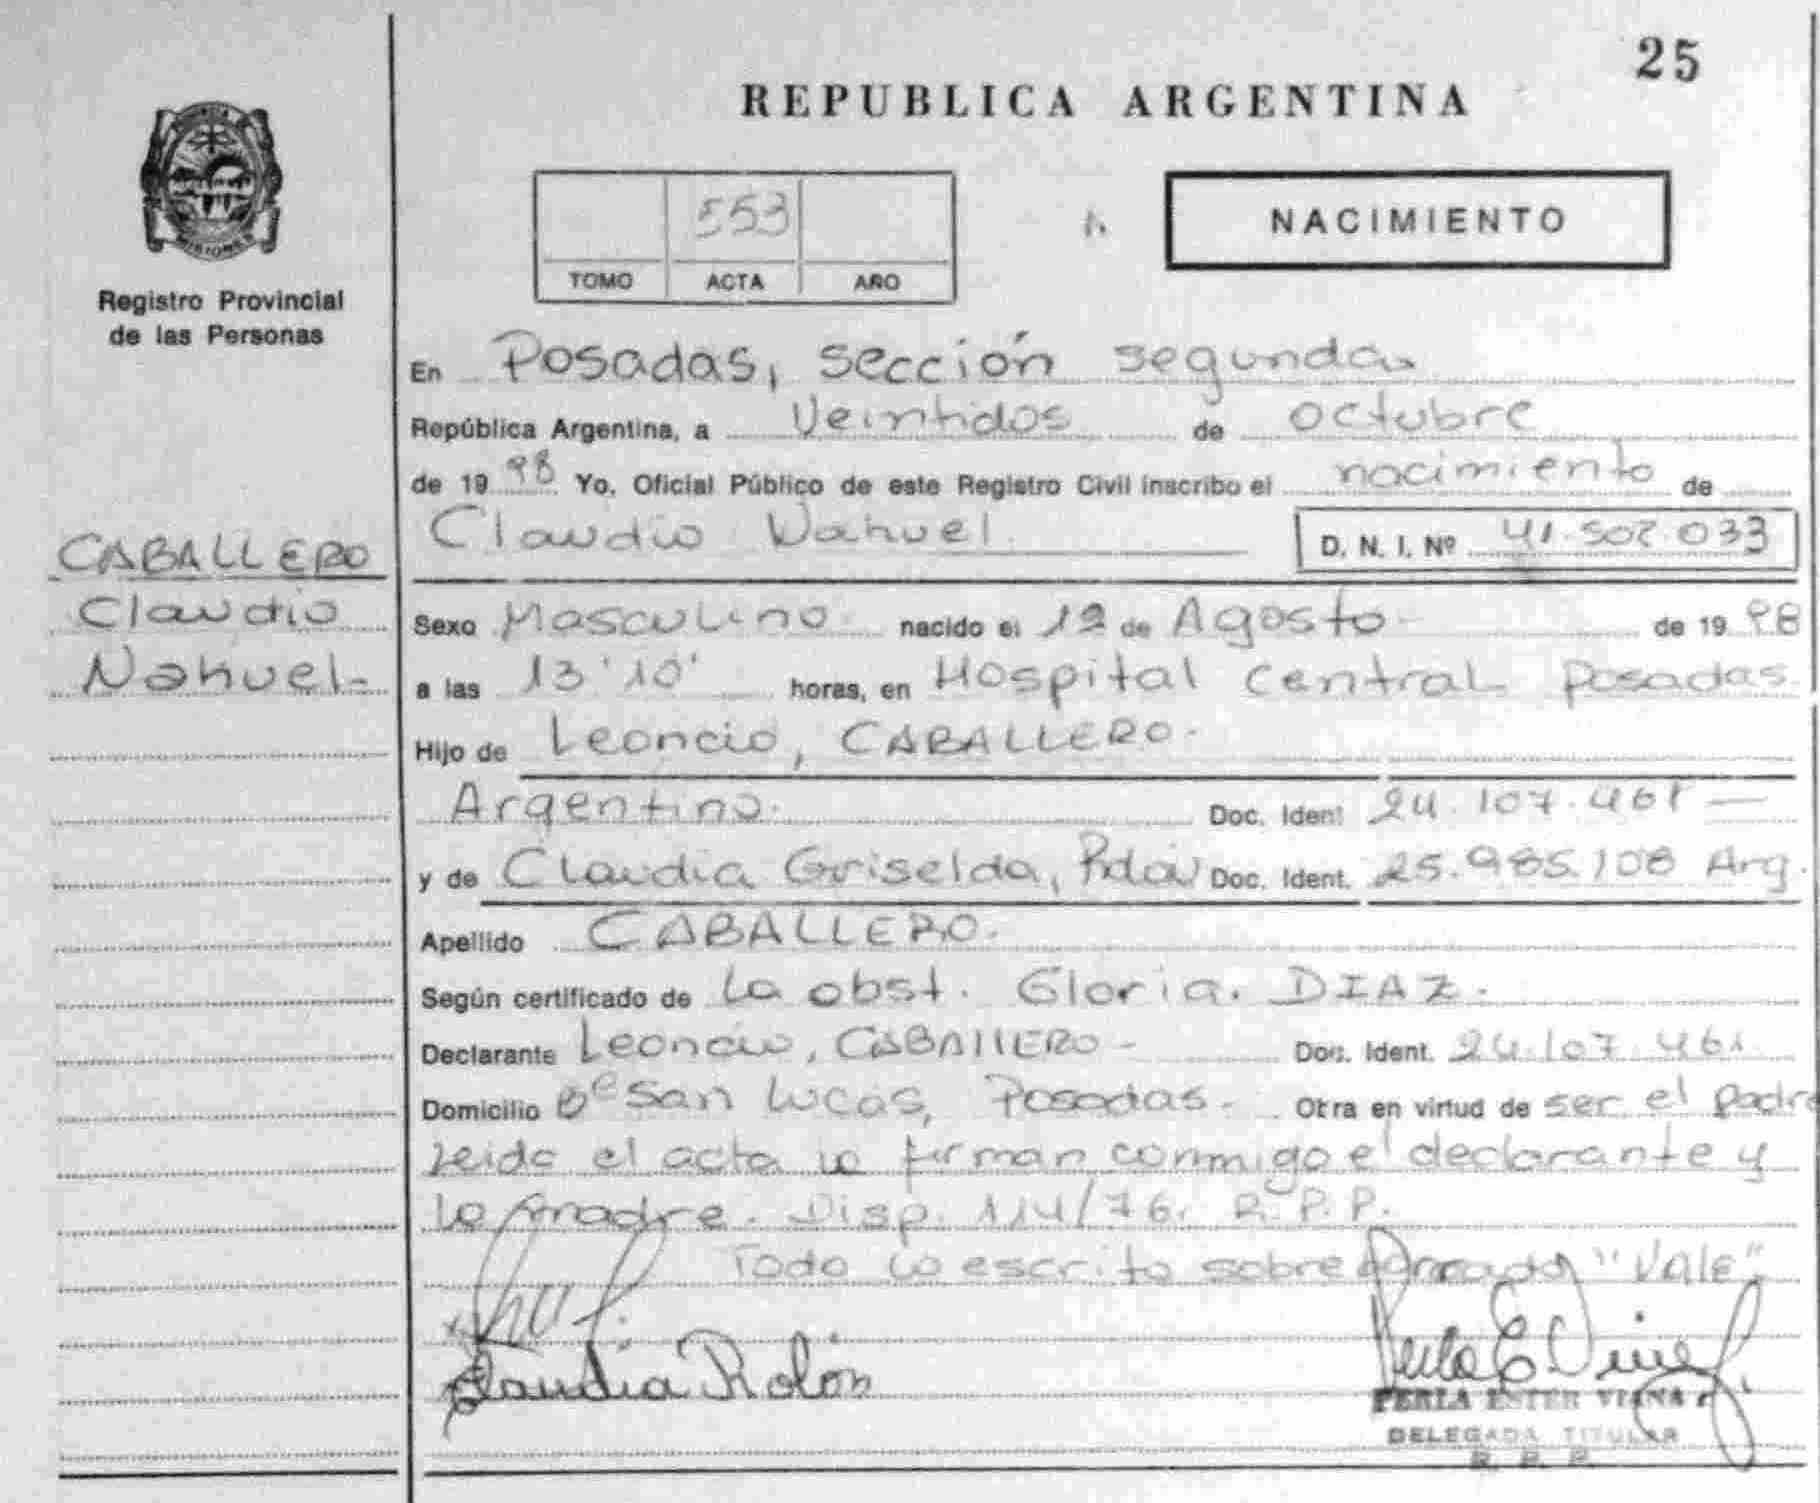 25
REPUBLICA ARGENTINA
553
TOMO ACTA AÑO
NACIMIENTO
MISIONES
Registro Provincial
de las Personas
En Posadas, sección segunda
República Argentina, a Veintidos de octubre
de 1998 Yo, Oficial Público de este Registro Civil inscribo el nacimiento de
Claudio Nahuel D. N. I. Nº 41.502.033
CABALLERO
Claudio
Nahuel-
Sexo Masculino nacido el 12 de Agosto- de 1998
a las 13'10' horas, en Hospital Central Posadas
Hijo de Leoncio, CABALLERO.
Argentino. Doc. Ident 24.107.461 —
y de Claudia Griselda, Doc. Ident. 25.985.108 Arg.
Apellido CABALLERO.
Según certificado de la obst. Gloria. DIAZ.
Declarante Leoncio, CABALLERO- Doc. Ident. 24.107.461
Domicilio Bº San Lucas, Posadas. Otra en virtud de ser el padre
Leida el acta la firman conmigo el declarante y
la madre. Disp. 114/76. R.P.P.
Todo lo escrito sobre "Vale".
Claudia Rolón
PERLA ESTER VIANA
DELEGADA TITULAR
R. P. P.